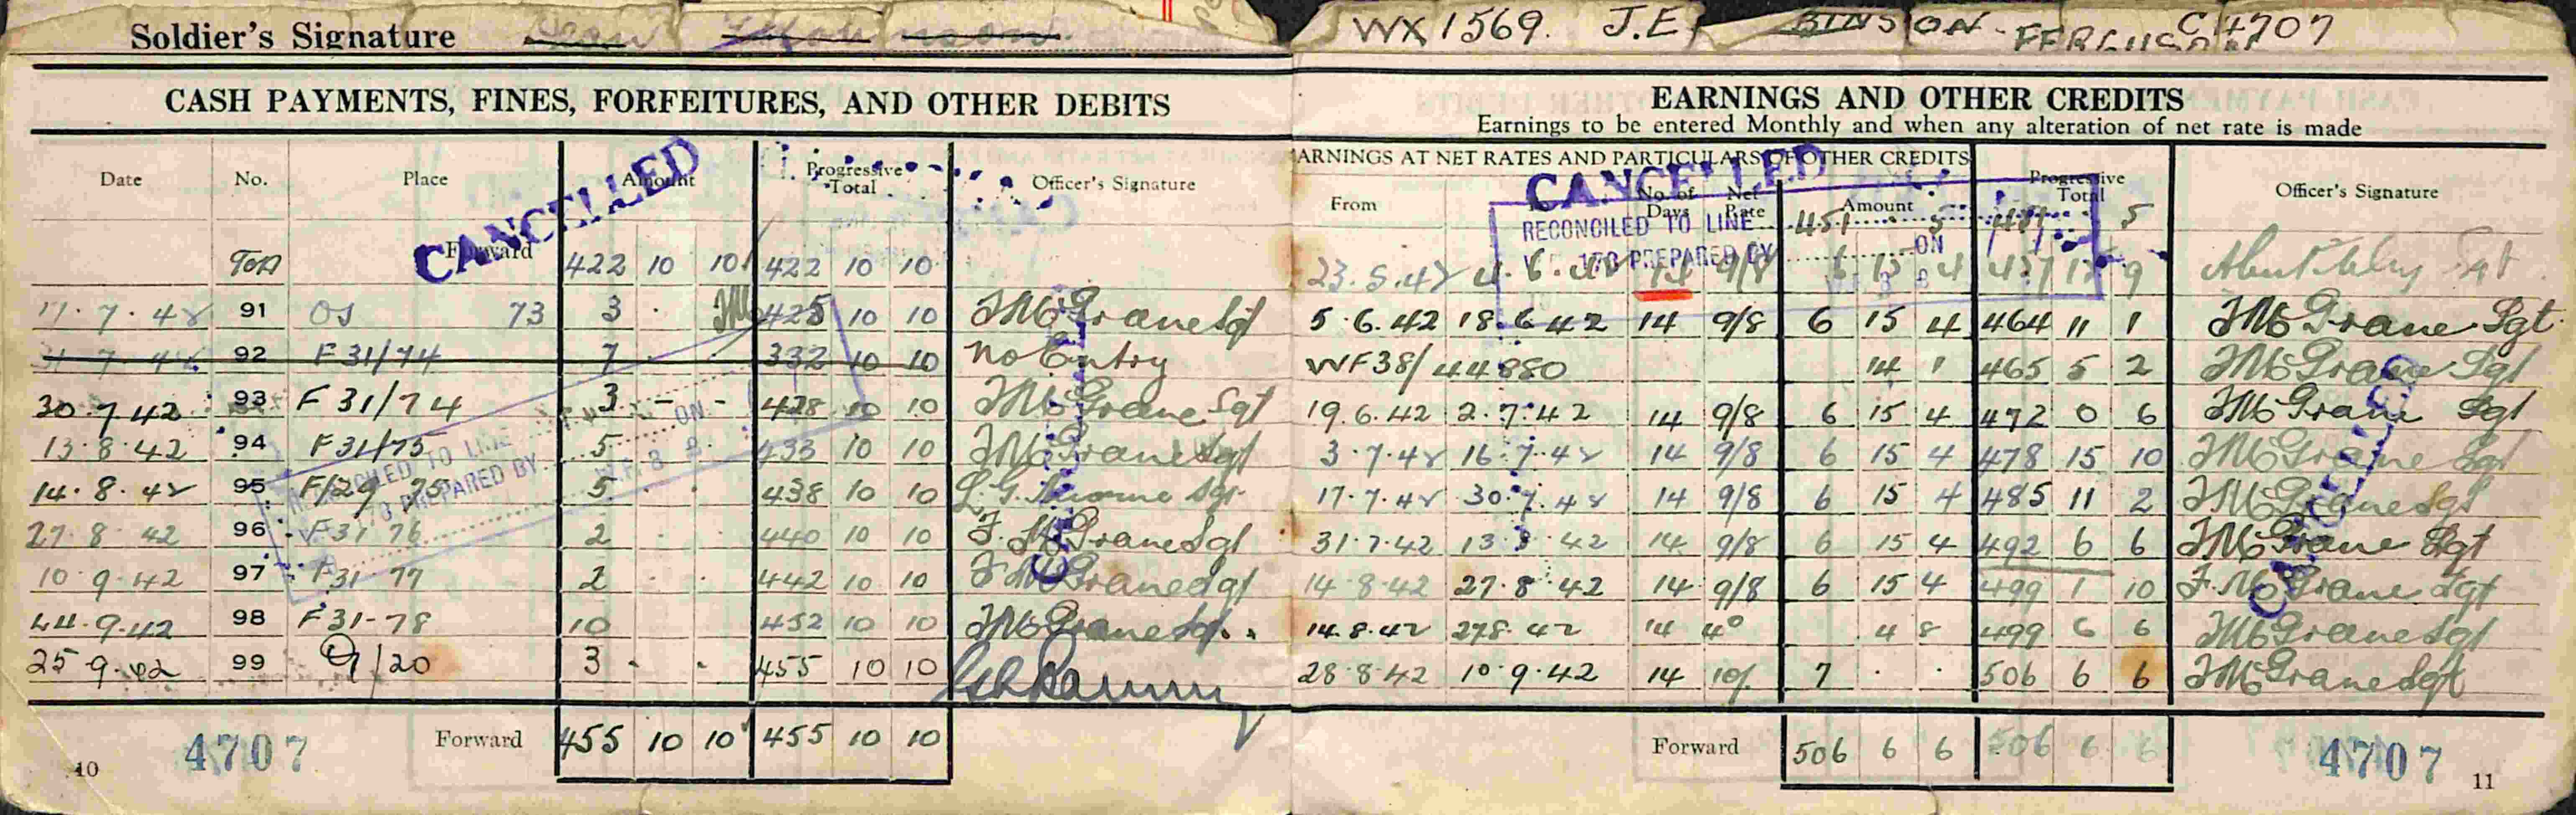 Soldier's Signature
WX 1569. J.E. BINSON - FERGUSON C 4707
CASH PAYMENTS, FINES, FORFEITURES, AND OTHER DEBITS
Date No. Place Amount Progressive Total Officer's Signature
CANCELLED
Forward 422 10 10 422 10 10
17.7.42 91 OS 73 3 . 425 10 10 McGrane Sgt
92 F 31/74 7 332 10 10 No Entry
30.7.42 93 F 31/74 3 - - 428 10 10 McGrane Sgt
13.8.42 94 F 31/75 5 . . 433 10 10 McGrane Sgt
14.8.42 95 F/29 75 5 . . 438 10 10 Sgt
27.8.42 96 F 31 76 2 . . 440 10 10 F. McGrane Sgt
10.9.42 97 F 31 77 2 . . 442 10 10 F McGrane Sgt
24.9.42 98 F 31-78 10 452 10 10 McGrane Sgt.
25 9.42 99 9/20 3 . . 455 10 10
RECONCILED TO LINE ON
TO PREPARED BY
CANCELLED
Forward 455 10 10 455 10 10
10 4707
EARNINGS AND OTHER CREDITS
Earnings to be entered Monthly and when any alteration of net rate is made
ARNINGS AT NET RATES AND PARTICULARS OF OTHER CREDITS
From No. of Days Net Rate Amount Progressive Total Officer's Signature
CANCELLED
RECONCILED TO LINE ON
TO PREPARED BY
451 5 5
23.5.42 4.6. 14 9/8 6 15 4 9 Sgt
5.6.42 18.6.42 14 9/8 6 15 4 464 11 1 McGrane Sgt.
WF38/44880 14 1 465 5 2 McGrane Sgt
19 6.42 2.7.42 14 9/8 6 15 4 472 0 6 McGrane Sgt
3.7.42 16.7.42 14 9/8 6 15 4 478 15 10 McGrane Sgt
17.7.42 30.7.42 14 9/8 6 15 4 485 11 2 McGrane Sgt
31.7.42 13.8.42 14 9/8 6 15 4 492 6 6 McGrane Sgt
14.8.42 27.8.42 14 9/8 6 15 4 499 1 10 F. McGrane Sgt
14.8.42 27.8.42 14 4ᴰ 4 8 499 6 6 McGrane Sgt
28.8.42 10.9.42 14 10/. 7 . . 506 6 6 McGrane Sgt
CANCELLED
Forward 506 6 6 506 6 6
4707 11